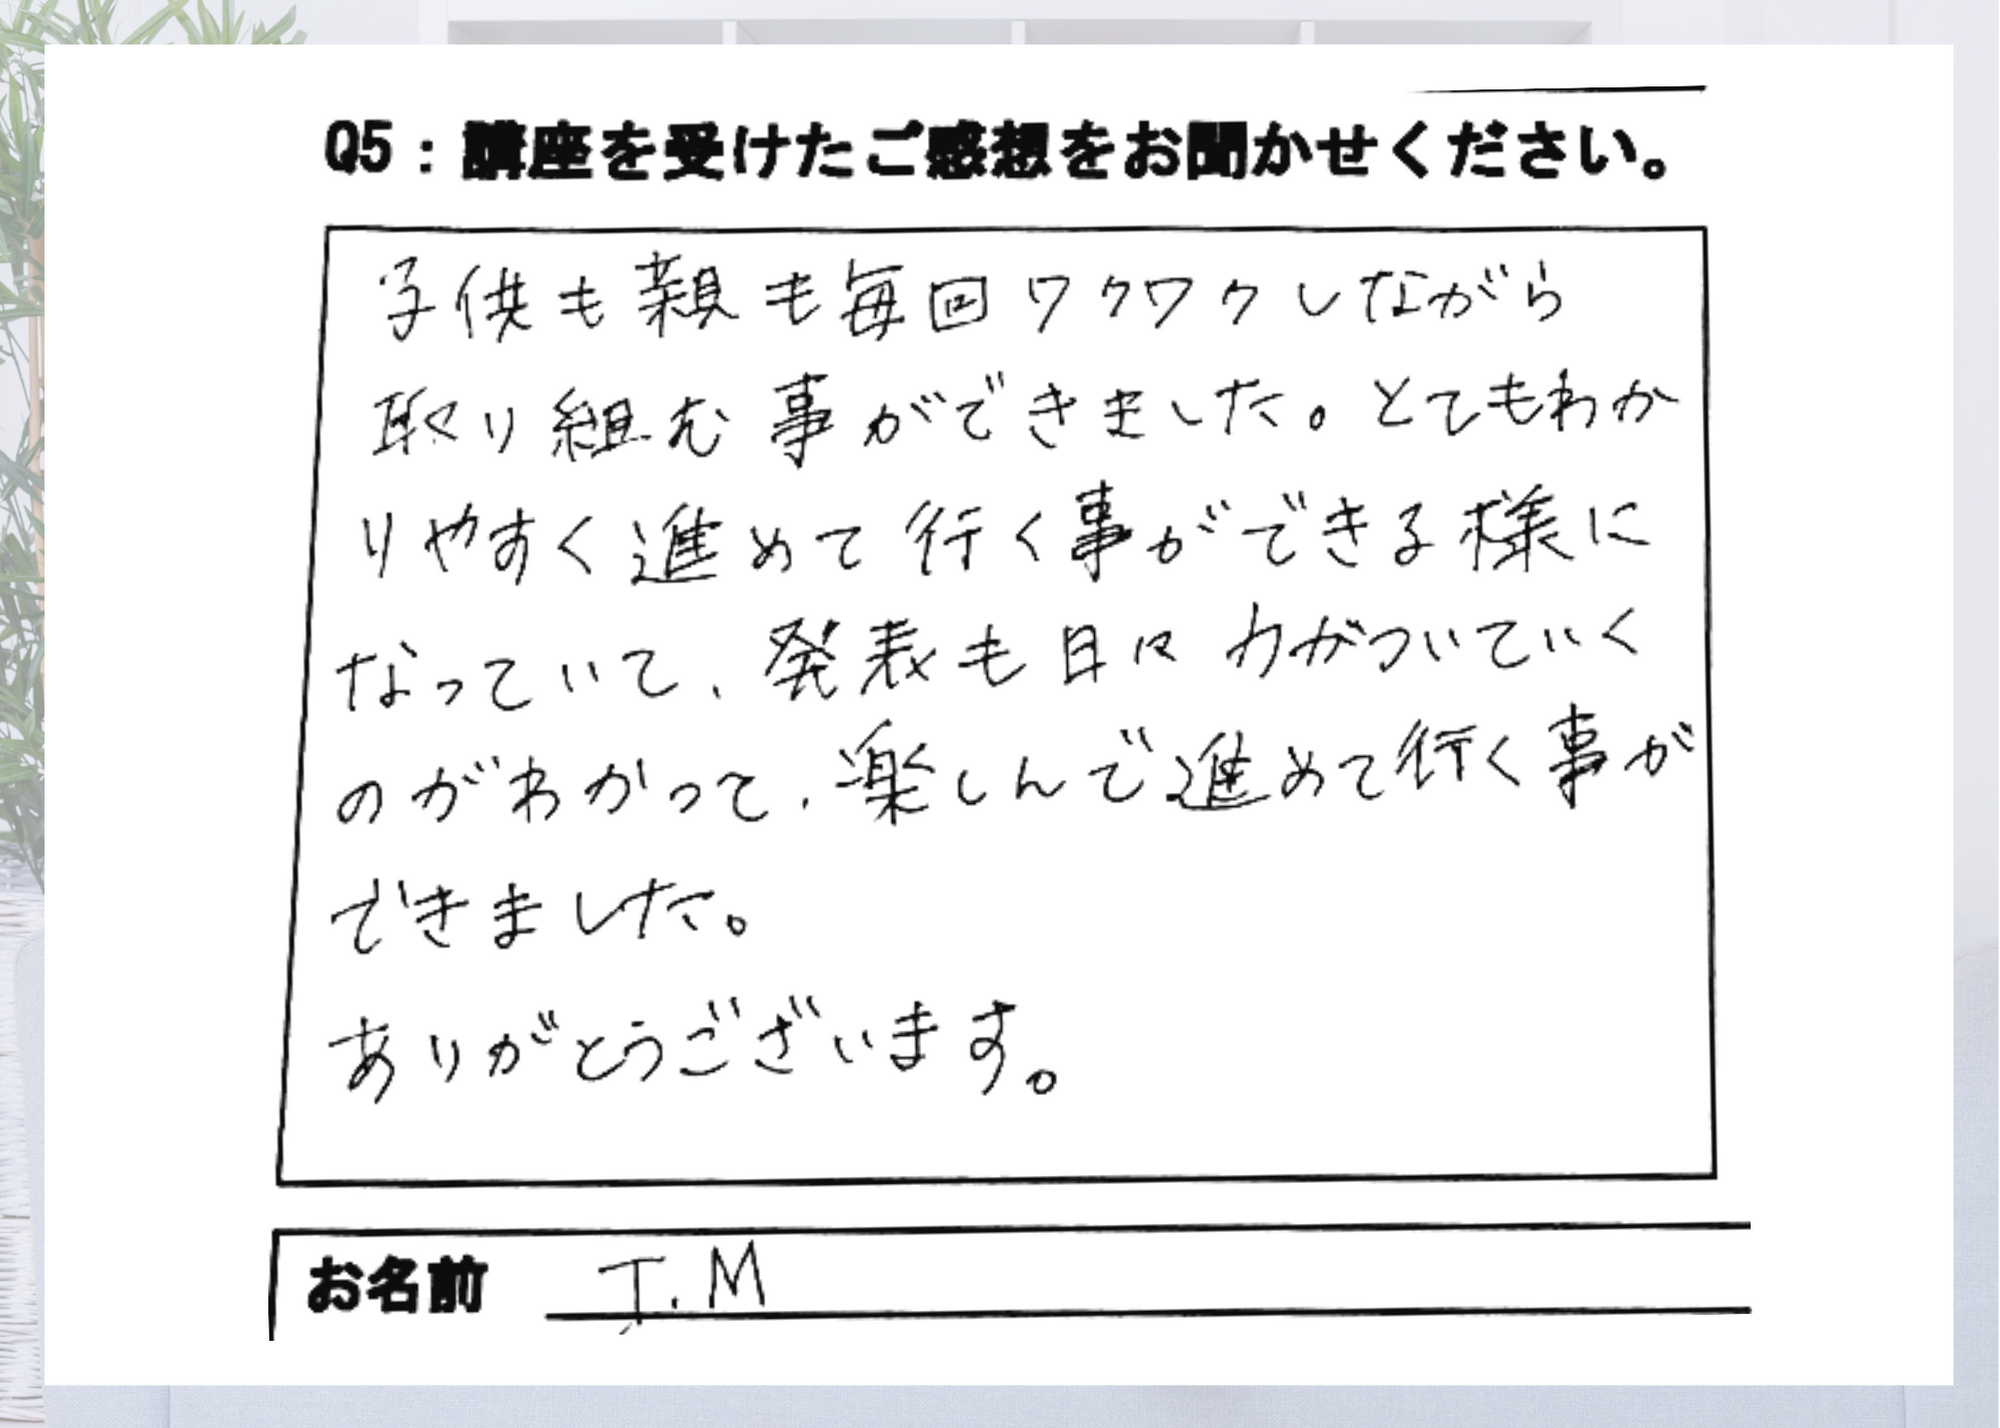 Q5：講座を受けたご感想をお聞かせください。
子供も親も毎回ワクワクしながら
取り組む事ができました。とてもわか
りやすく進めて行く事ができる様に
なっていて、発表も日々力がついていく
のがわかって、楽しんで進めて行く事が
できました。
ありがとうございます。
お名前 T.M